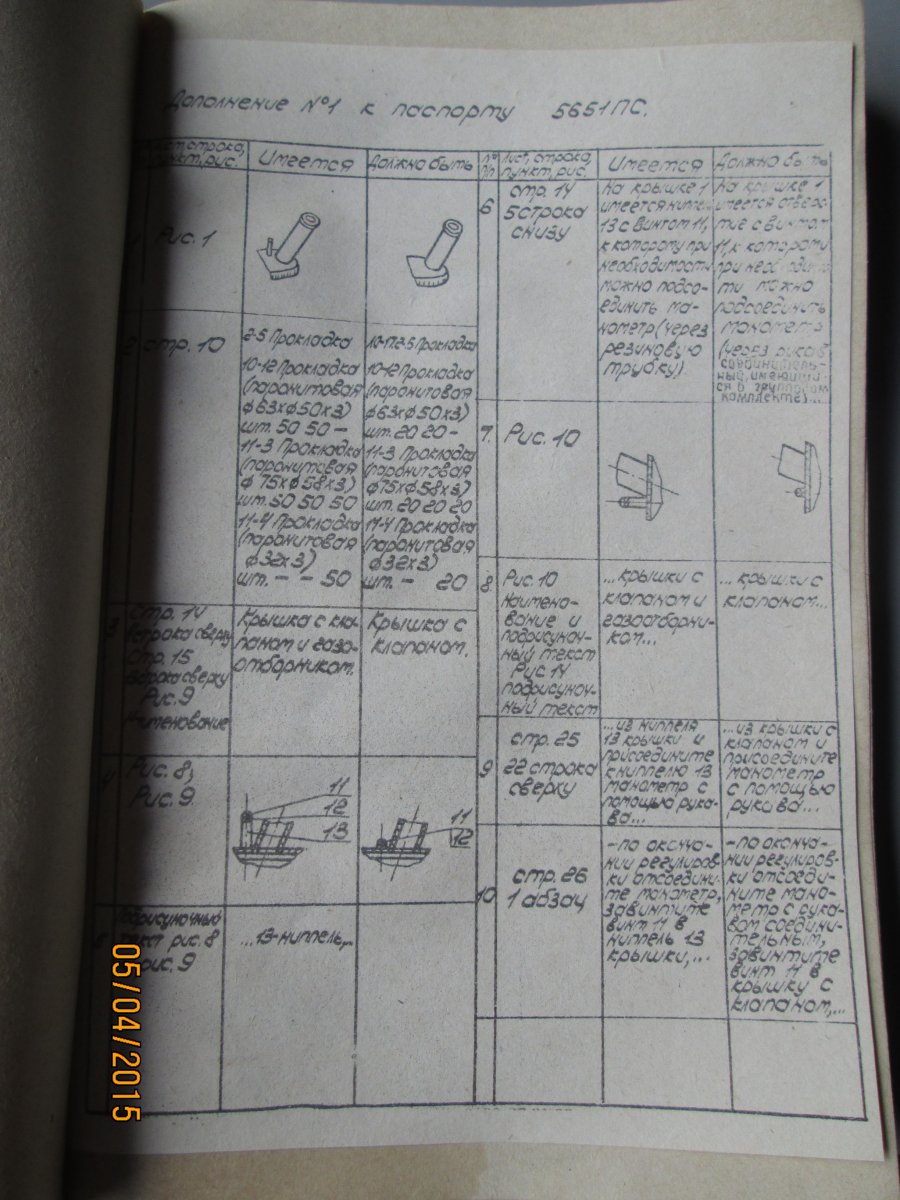 Дополнение №1 к паспорту 5651ПС.
пункт, рис.
Имеется
Должно быть
Рис. 1
2
стр. 10
2-5 Прокладка
10-12 Прокладка
(паронитовая
ф63хф50х3)
шт. 50 50 —
11-3 Прокладка
(паронитовая
ф75хф58х3)
шт. 50 50 50
11-4 Прокладка
(паронитовая
ф32х3)
шт. — — 50
Прокладка
10-12 Прокладка
(паронитовая
ф63хф50х3)
шт. 20 20 -
11-3 Прокладка
(паронитовая
ф75хф58х3)
шт. 20 20 20
11-4 Прокладка
(паронитовая
ф32х3)
шт. — 20
3
стр. 14
строка сверху
стр. 15
строка сверху
Рис. 9
Наименование
Крышка с кла-
паном и газо-
отборником.
Крышка с
клапаном.
4
Рис. 8,
Рис. 9
11
12
13
11
12
Подрисуночный
текст рис. 8
рис. 9
...13-ниппель,..
№ п/п
Лист, строка,
пункт, рис.
Имеется
Должно быть
6
стр. 14
5 строка
снизу
На крышке 1
имеется ниппель
13 с винтом 11,
к которому при
необходимости
можно подсо-
единить ма-
нометр (через
резиновую
трубку)
На крышке 1
имеется отверс-
тие с винтом
11, к которому
при необходимос-
ти можно
подсоединить
манометр
(через рукав
соединитель-
ный, имеющий-
ся в групповом
комплекте)...
7.
Рис. 10
8
Рис. 10
Наимено-
вание и
подрисуноч-
ный текст
Рис 14
подрисуноч-
ный текст
...крышки с
клапаном и
газоотборни-
ком...
...крышки с
клапаном...
9
стр. 25
22 строка
сверху
...из ниппеля
13 крышки и
присоедините
к ниппелю 13
манометр с
помощью рука-
ва...
...из крышки с
клапаном и
присоедините
манометр
с помощью
рукава...
10
стр. 26
1 абзац
-по оконча-
нии регулиров-
ки отсоедини-
те манометр,
завинтите
винт 11 в
ниппель 13
крышки,...
-по оконча-
нии регулиров-
ки отсоеди-
ните мано-
метр с рука-
вом соедини-
тельным,
завинтите
винт 11 в
крышку с
клапаном,...
05/04/2015